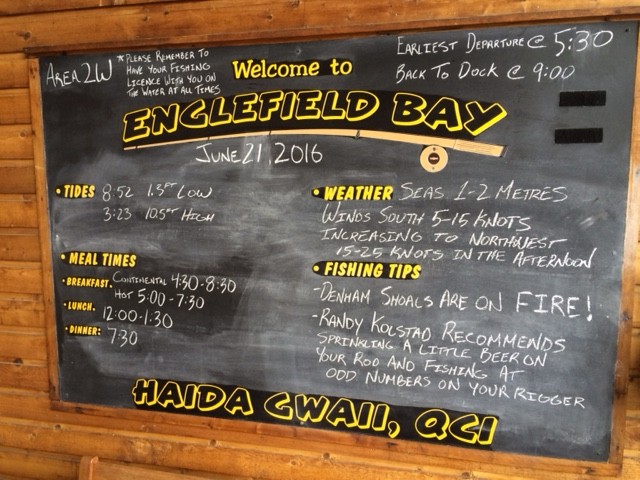 AREA 2W
* PLEASE REMEMBER TO
HAVE YOUR FISHING
LICENCE WITH YOU ON
THE WATER AT ALL TIMES
Welcome to
EARLIEST DEPARTURE @ 5:30
BACK TO DOCK @ 9:00
ENGLEFIELD BAY
JUNE 21, 2016
• TIDES 8:52 1.3FT LOW
3:23 10.5FT HIGH
• MEAL TIMES
• BREAKFAST. CONTINENTAL 4:30-8:30
HOT 5:00-7:30
• LUNCH. 12:00-1:30
• DINNER: 7:30
• WEATHER SEAS 1-2 METRES
WINDS SOUTH 5-15 KNOTS
INCREASING TO NORTHWEST
15-25 KNOTS IN THE AFTERNOON
• FISHING TIPS
- DENHAM SHOALS ARE ON FIRE!
- RANDY KOLSTAD RECOMMENDS
SPRINKLING A LITTLE BEER ON
YOUR ROD AND FISHING AT
ODD NUMBERS ON YOUR RIGGER
HAIDA GWAII, QCI